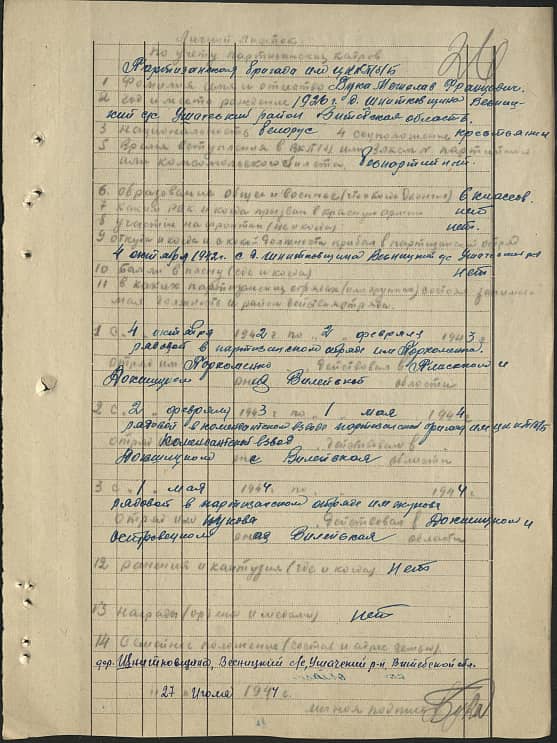 26
Личный листок
по учету партизанских кадров
Партизанская бригада им ЦККП/б/Б
1 Фамилия имя и отчество Бука Мечислав Францевич.
2 год и место рождение 1926 г. д. Шнитковщина Весниц-
кий с/с Ушачский район Витебская область.
3 Национальность белорус 4 соцположение крестьянин
5 Время вступления в ВКП/б/ или ВЛКСМ N партийного
или комсомольского билета. беспартийный.
6. образование общее и военное (что когда окончил) 6 классов.
7 каким РВК и когда призван в красную армию нет
8 участие на фронтах (где и когда) нет.
9 откуда и когда и в какой должности прибыл в партизанский отряд
4 октября 1942г. с д. Шнитковщина Весницкий с/с Ушачский р-н
10 был ли в плену (где и когда) Нет
11 в каких партизанских отрядах (или группах) состоял занимае-
мая должность и район действия отряда.
1 С „4 октября 1942 г по „2 „ февраля 1943 г.
рядовой в партизанском отряде им Пархоменко.
отряд им Пархоменко действовал в Плисском и
Докшицком р-нах Вилейской области
2 С „2 „ февраля 1943 г по „1 „ мая 1944
рядовой в комендантском взводе партизанской бригады им ЦККП/б/Б
Отряд Комендантский взвод действовал в
Докшицком р-не Вилейская области
3 С „1 „ мая 1944 г. по 1944 г.
рядовой в партизанском отряде им жукова
Отряд им жукова действовал в Докшицком и
островецком р-нах Вилейская области
12 ранения и кантузия (где и когда) Нет
13 Награды (ордена и медали) нет
14 Семейное положение (состав и адрес семьи)
дер. Шнитковщина, Весницкий с/с, Ушачский р-н, Витебской обл.
„27 „ Июля 1944 г.
личная подпись Бука